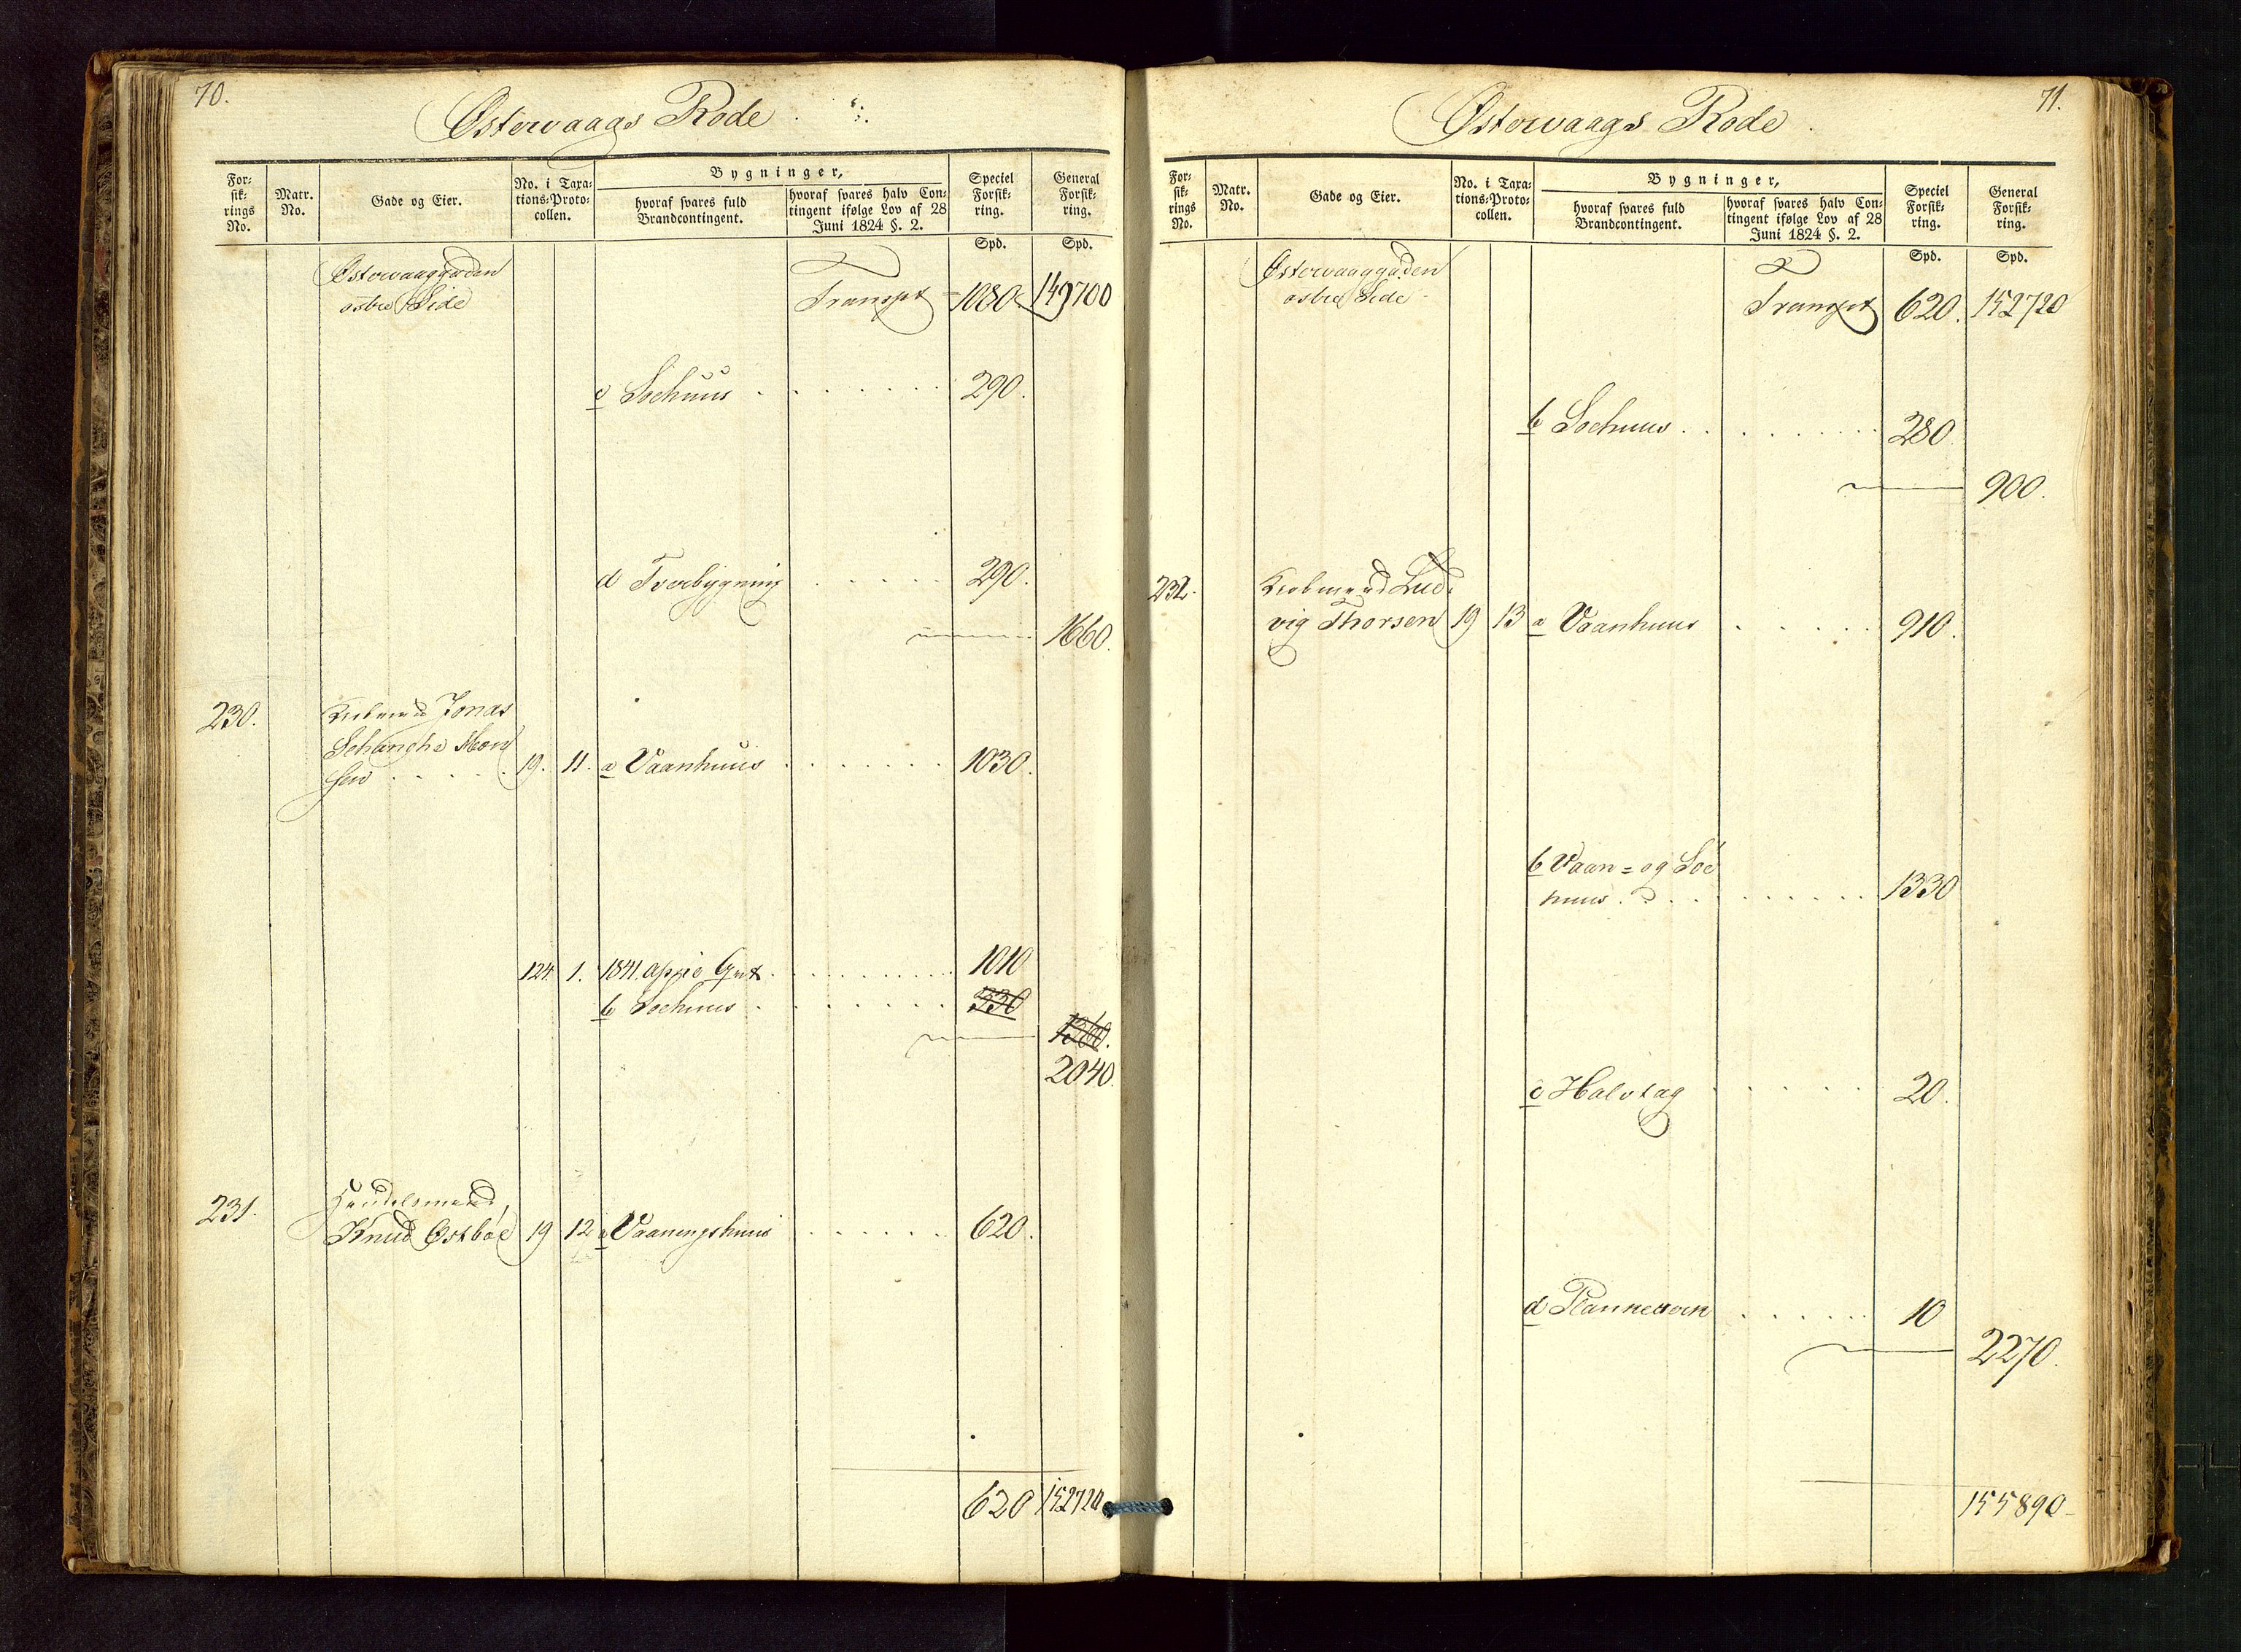 70.
Østervaags Rode
For:
sik:
rings
No.
Matr.
No.
Gade og Eier.
No. i Taxa:
tions:Proto:
collen.
Bygninger,
hvoraf svares fuld
Brandcontingent.
hvoraf svares halv Con:
tingent ifølge Lov af 28
Juni 1824 §. 2.
Speciel
Forsik:
ring.
General
Forsik:
ring.
Spd. Spd.
Østervaaggaden
østre Side
Transpt 1080 149700
c Søehuus 290.
d Tverbygning 290.
1660.
230. Kiøbmand Jonas
Schanche Mon
sen 19. 11. a Vaanhuus 1030.
124 1. 1841. 1010
b Søehuus 330
1360.
2040.
231. Handelsmand
Knud Østbøe 19 12 a Vaaningshuus 620.
620 152720
71.
Østervaags Rode.
For:
sik:
rings
No.
Matr.
No.
Gade og Eier.
No. i Taxa:
tions:Proto:
collen.
Bygninger,
hvoraf svares fuld
Brandcontingent.
hvoraf svares halv Con:
tingent ifølge Lov af 28
Juni 1824 §. 2.
Speciel
Forsik:
ring.
General
Forsik:
ring.
Spd. Spd.
Østervaaggaden
østre Side
Transpt 620. 152720
b Søehuus 280
900.
232. Kiøbmand Lud
vig Thorsen 19 13 a Vaanhuus 910.
b Vaan= og Søe
huus 1330
c Halvtag 20.
d 10
2270.
155890